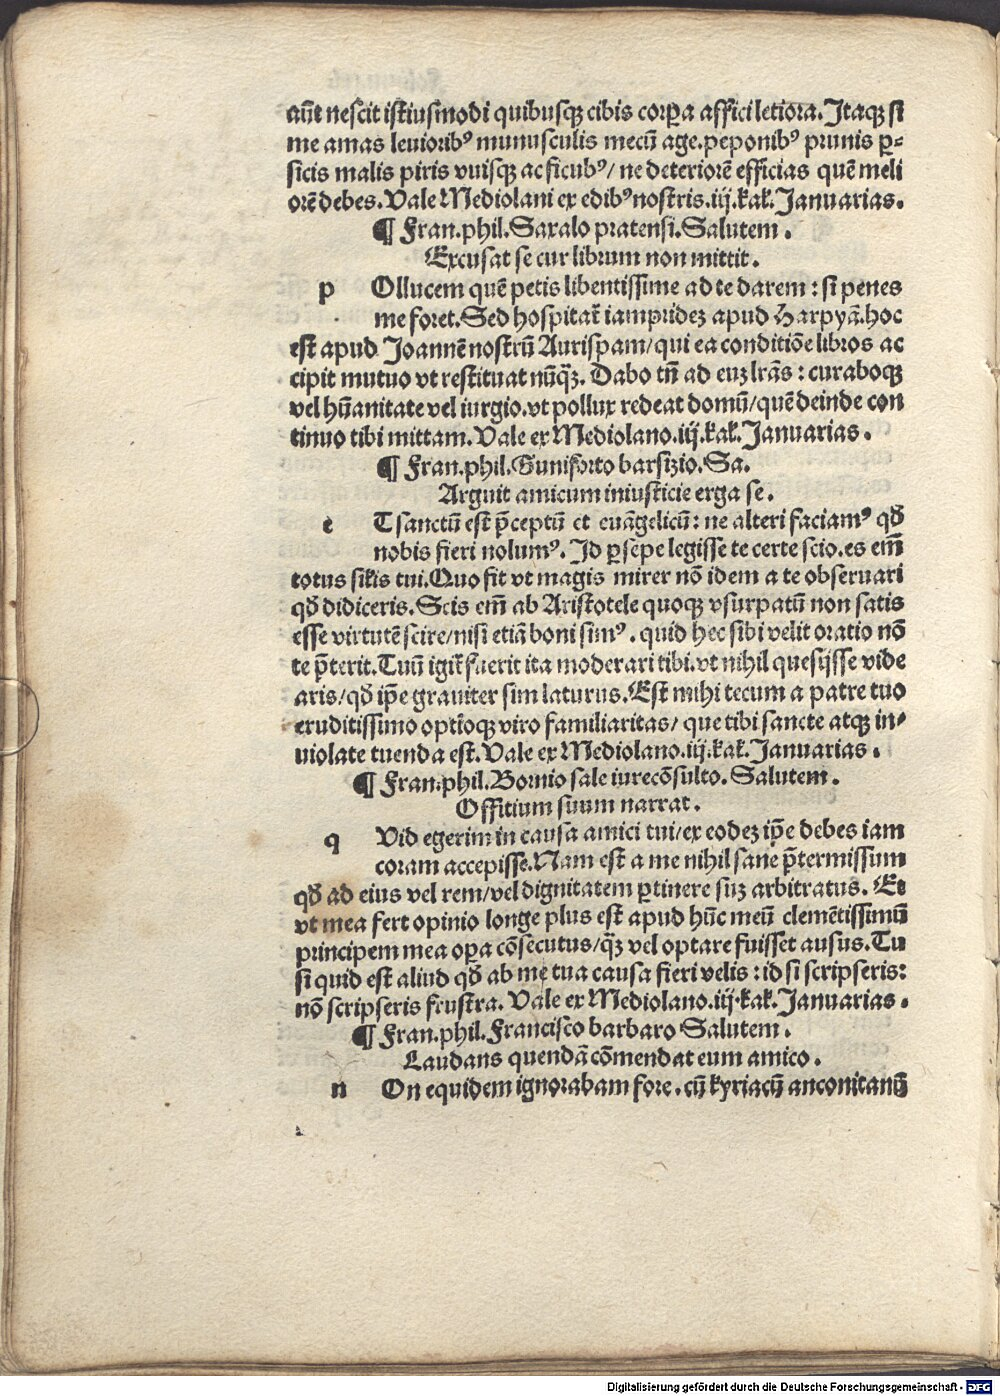 aūt nescit istiusmodi quibusqꝫ cibis corꝑa affici letiora. Itaqꝫ si
me amas leuioribꝰ munusculis mecū age. peponibꝰ prunis ꝑ-
sicis malis piris vuisqꝫ ac ficubꝰ/ ne deteriorē efficias quē meli
orē debes. Vale Mediolani ex edibꝰ nostris. iij. kal. Januarias.
¶ Fran. phil. Saxalo pratensi. Salutem.
Excusat se cur librum non mittit.
p Ollucem quē petis libentissime ad te darem: si penes
me foret. Sed hospitat̄ iampridez apud Harpyā. hoc
est apud Joannē nostrū Aurispam/ qui ea conditiōe libros ac
cipit mutuo vt restituat nūq̄ꝫ. Dabo tn̄ ad euz lr̄as: curaboqꝫ
vel hūanitate vel iurgio. vt pollux redeat domū/ quē deinde con
tinuo tibi mittam. Vale ex Mediolano. iij. kal. Januarias.
¶ Fran. phil. Guniforto barsizio. Sa.
Arguit amicum iniusticie erga se.
e T sanctū est p̄ceptū et euāgelicū: ne alteri faciamꝰ qd̄
nobis fieri nolumꝰ. Id ꝑsepe legisse te certe scio. es em̄
totus silis tui. Quo fit vt magis mirer nō idem a te obseruari
qd̄ didiceris. Scis em̄ ab Aristotele quoqꝫ vsurpatū non satis
esse virtutē scire/ nisi etiā boni simꝰ. quid hec sibi velit oratio nō
te p̄terit. Tuū igit̄ fuerit ita moderari tibi. vt nihil quesijsse vide
aris/ qd̄ ip̄e grauiter sim laturus. Est mihi tecum a patre tuo
eruditissimo optioqꝫ viro familiaritas/ que tibi sancte atqꝫ in-
uiolate tuenda est. Vale ex Mediolano. iij. kal. Januarias.
¶ Fran. phil. Bornio sale iurecōsulto. Salutem.
Offitium suum narrat.
q Vid egerim in causa amici tui/ ex eodez ip̄e debes iam
coram accepisse. Nam est a me nihil sane p̄termissum
qd̄ ad eius vel rem/ vel dignitatem ꝑtinere suz arbitratus. Et
vt mea fert opinio longe plus est apud hūc meū clemētissimū
principem mea oꝑa cōsecutus/ q̄ꝫ vel optare fuisset ausus. Tu
si quid est aliud qd̄ ab me tua causa fieri velis: id si scripseris:
nō scripseris frustra. Vale ex Mediolano. iij. kal. Januarias.
¶ Fran. phil. Francisco barbaro Salutem.
Laudans quendā cōmendat eum amico.
n On equidem ignorabam fore. cū kyriacū anconitanū
Digitalisierung gefördert durch die Deutsche Forschungsgemeinschaft - DFG